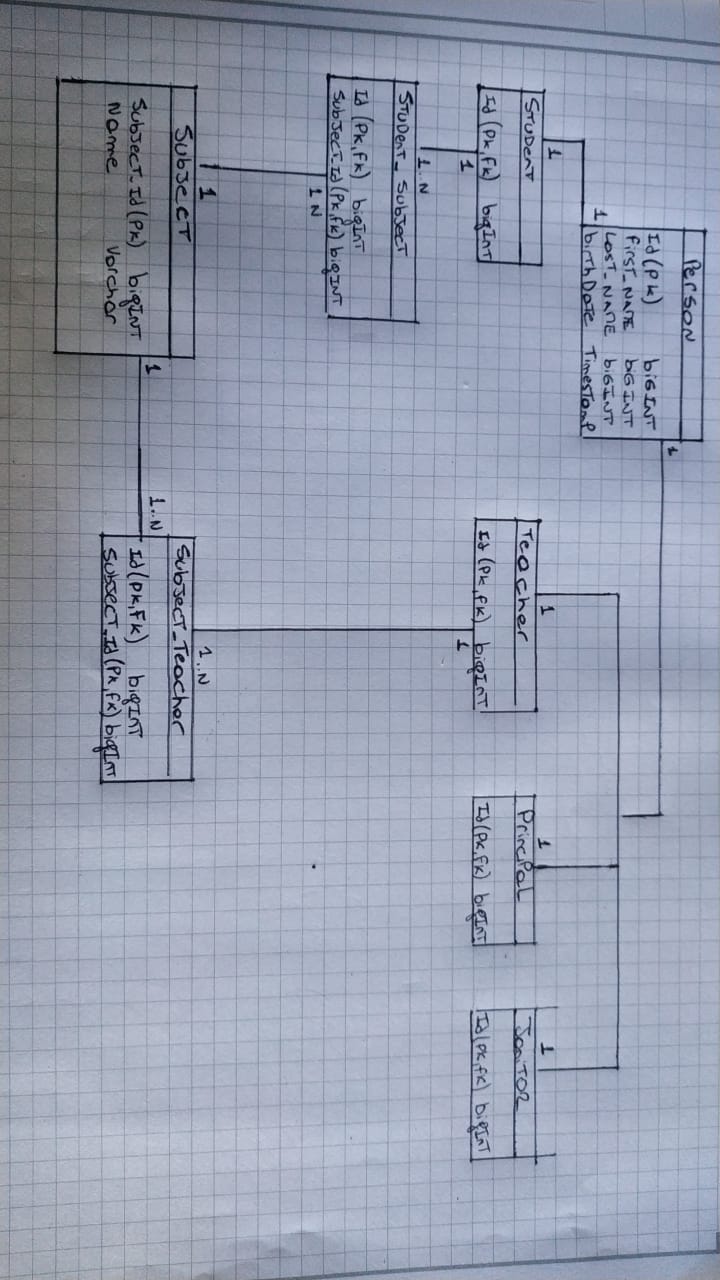 Person
Id (Pk) biGInT
first_name biGInT
Last_name biGInT
birthDate Timestamp
1
1
1
Student
Id (Pk,fk) bigInT
1
1..N
Student_Subject
Id (Pk,fk) bigInT
Subject_Id (Pk,fk) bigInT
1 N
1
Subject
Subject_Id (Pk) bigInT
Name Varchar
1
1..N
Subject_Teacher
Id (Pk,fk) bigInT
Subject_Id (Pk,fk) bigInt
1..N
1
Teacher
Id (Pk,fk) bigInT
1
1
Principal
Id (Pk,fk) bigInT
1
Janitor
Id (Pk,fk) bigInT